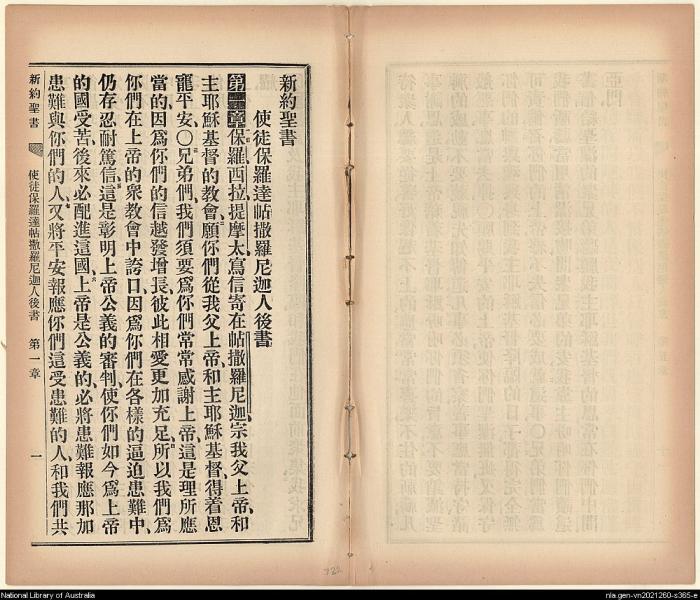 新約聖書
使徒保羅達帖撒羅尼迦人後書
第一章保羅西拉提摩太寫信寄在帖撒羅尼迦宗我父上帝和
主耶穌基督的教會願你們從我父上帝和主耶穌基督得着恩
寵平安〇兄弟們我們須要爲你們常常感謝上帝這是理所應
當的因爲你們的信越發增長彼此相愛更加充足所以我們爲
你們在上帝的衆教會中誇口因爲你們在各樣的逼迫患難中
仍存忍耐篤信這是彰明上帝公義的審判使你們如今爲上帝
的國受苦後來必配進這國上帝是公義的必將患難報應那加
患難與你們的人又將平安報應你們這受患難的人和我們共
新約聖書 使徒保羅達帖撒羅尼迦人後書 第一章 一
722
National Library of Australia
nla.gen-vn2021260-s365-e